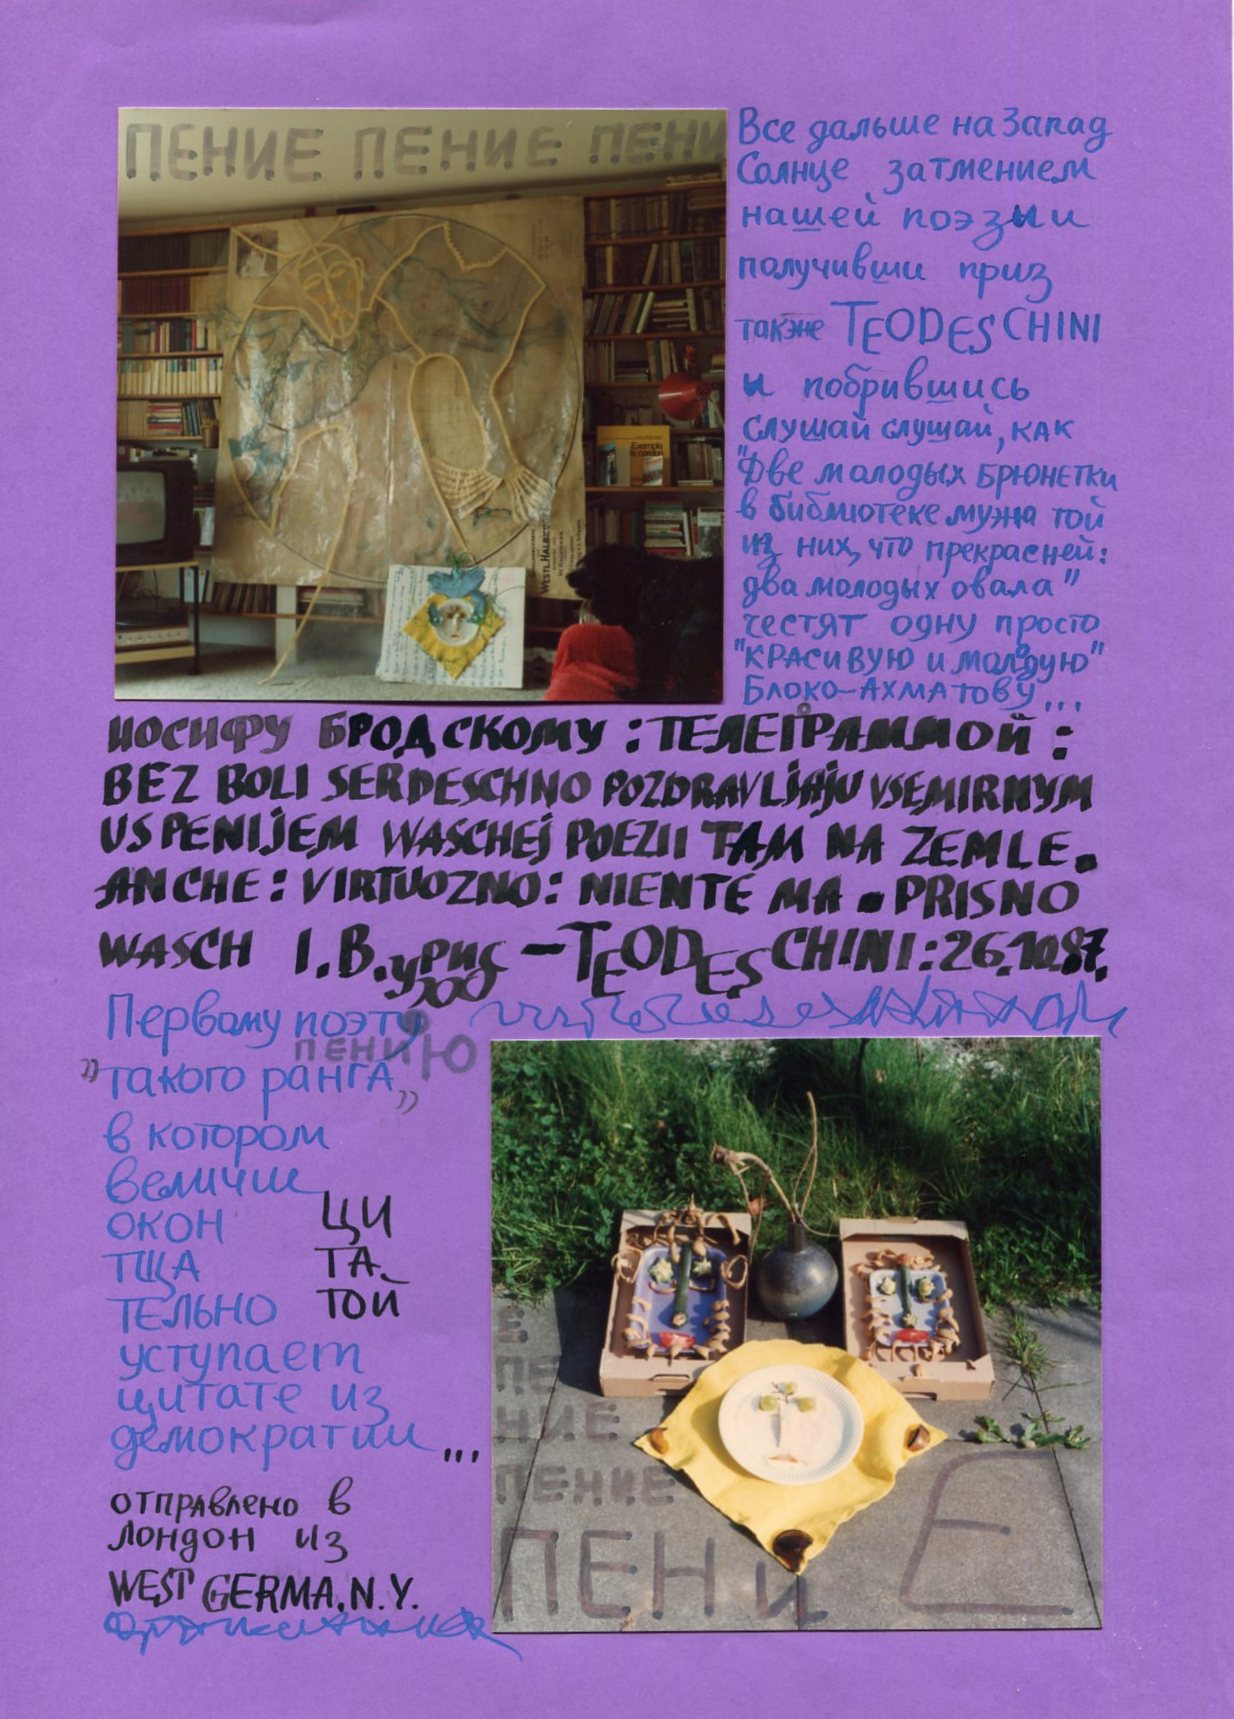 ПЕНИЕ ПЕНИЕ ПЕНИ
Все дальше на Запад
Солнце затмением
нашей поэзыи
получивши приз
также TEODESCHINI
и побрившись
слушай слушай, как
"Две молодых брюнетки
в библиотеке мужа той
из них, что прекрасней:
два молодых овала"
честят одну просто
"красивую и молодую"
Блоко-Ахматову...
WESTL. HALBK
Exempla
ИОСИФУ БРОДСКОМУ: ТЕЛЕГРАММОЙ:
BEZ BOLI SERDESCHNO POZDRAVLJAJU VSEMIRNYM
USPENIJEM WASCHEJ POEZII TAM NA ZEMLE.
ANCHE: VIRTUOZNO: NIENTE MA. PRISNO
WASCH I.B. – TEODESCHINI: 26.10.87.
Первому поэту
пениЮ
"такого ранга"
в котором
величие
окон
тща
тельно
ЦИ
ТА
ТОЙ
уступает
цитате из
демократии...
отправлено в
Лондон из
WEST GERMA.N.Y.
Е
ПЕ
НИЕ
ПЕНИЕ
ПЕНИЕ